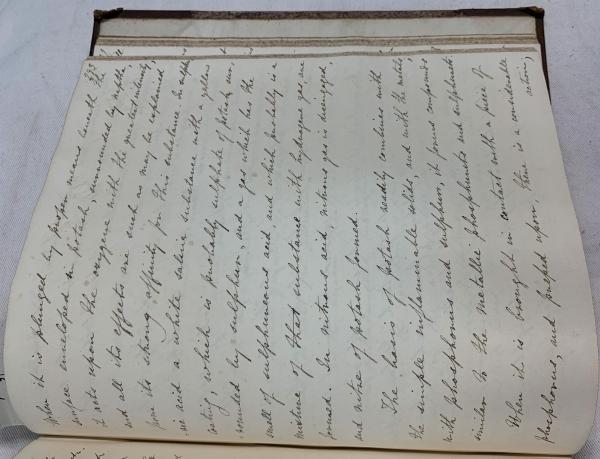 When it is plunged by proper means beneath the
surface enveloped in potash, surrounded by naphtha
it acts upon the oxygene with the greatest intensity,
and all its effects are such as may be explained
from its strong affinity for this substance. In sulphu
ric acid a white saline substance with a yellow
coating, which is probably sulphate of potash sur-
rounded by sulphur, and a gas which has the
smell of sulphureous acid, and which probably is a
mixture of that substance with hydrogene gas, are
formed. In nitrous acid, nitrous gas is disengaged,
and nitre of potash formed.
The basis of potash readily combines with
the simple inflammable solids, and with the metals;
with phosphorus and sulphur, it forms compounds
similar to the metallic phosphurets and sulphurets.
When it is brought in contact with a piece of
phosphorus, and pressed upon, there is a considerable
action;